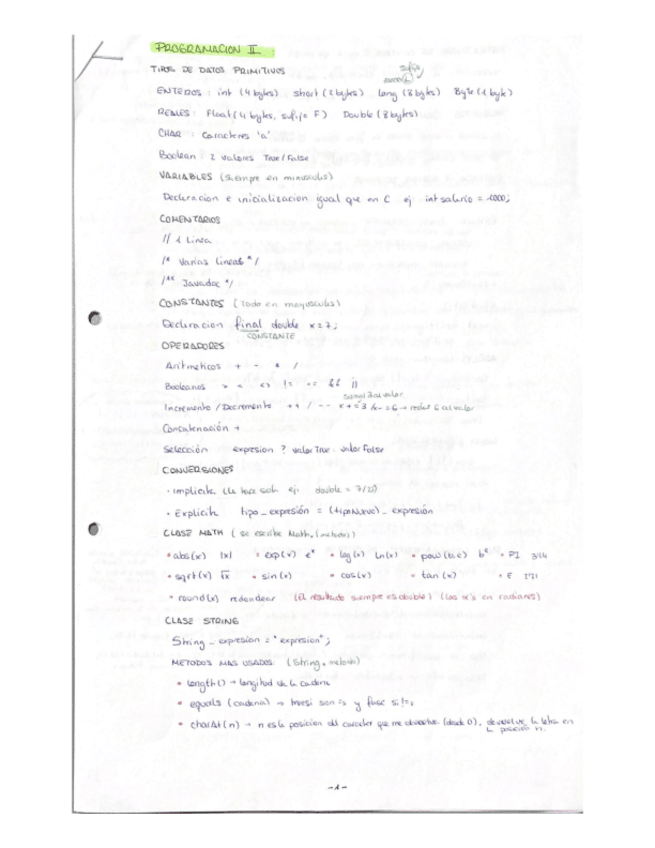 PROGRAMACION II
TIPOS DE DATOS PRIMITIVOS
ENTEROS : int (4 bytes) short (2 bytes) long (8 bytes) Byte (1 byte)
sufijo
REALES : Float (4 bytes, sufijo F) Double (8 bytes)
CHAR : Caracteres 'a'
Boolean : 2 valores True/False
VARIABLES (siempre en minusculas)
Declaracion e inicializacion igual que en C ej int salario = 1000;
COMENTARIOS
// 1 Linea
/* Varias lineas */
/** Javadoc */
CONSTANTES (Todo en mayusculas)
Declaracion final double x=7;
CONSTANTE
OPERADORES
Aritmeticos + - * /
Booleanos > < <> != == && ||
Incremento / Decremento ++ / -- x+=3 / x-=6 → restar 6 al valor
sumar 3 al valor
Concatenación +
Selección expresion ? valorTrue : valorFalse
CONVERSIONES
• Implicita ej: double = 7/20
• Explicita tipo_expresión = (tipoNuevo)_expresión
CLASE MATH (se escribe Math.(metodo))
• abs(x) |x| • exp(x) eˣ • log(x) ln(x) • pow(b,e) bᵉ • PI 3'14
• sqrt(x) √x • sin(x) • cos(x) • tan(x) • E
• round(x) redondear (El resultado siempre es double) (los en radianes)
CLASE STRING
String_expresion = "expresion";
METODOS MAS USADOS (String.metodo)
• length() → longitud de la cadena
• equals (cadena) → true si son == y false si !=
• charAt(n) → n es la posicion del caracter que me devuelve (desde 0), devuelve la letra en
la posicion n.
-1-